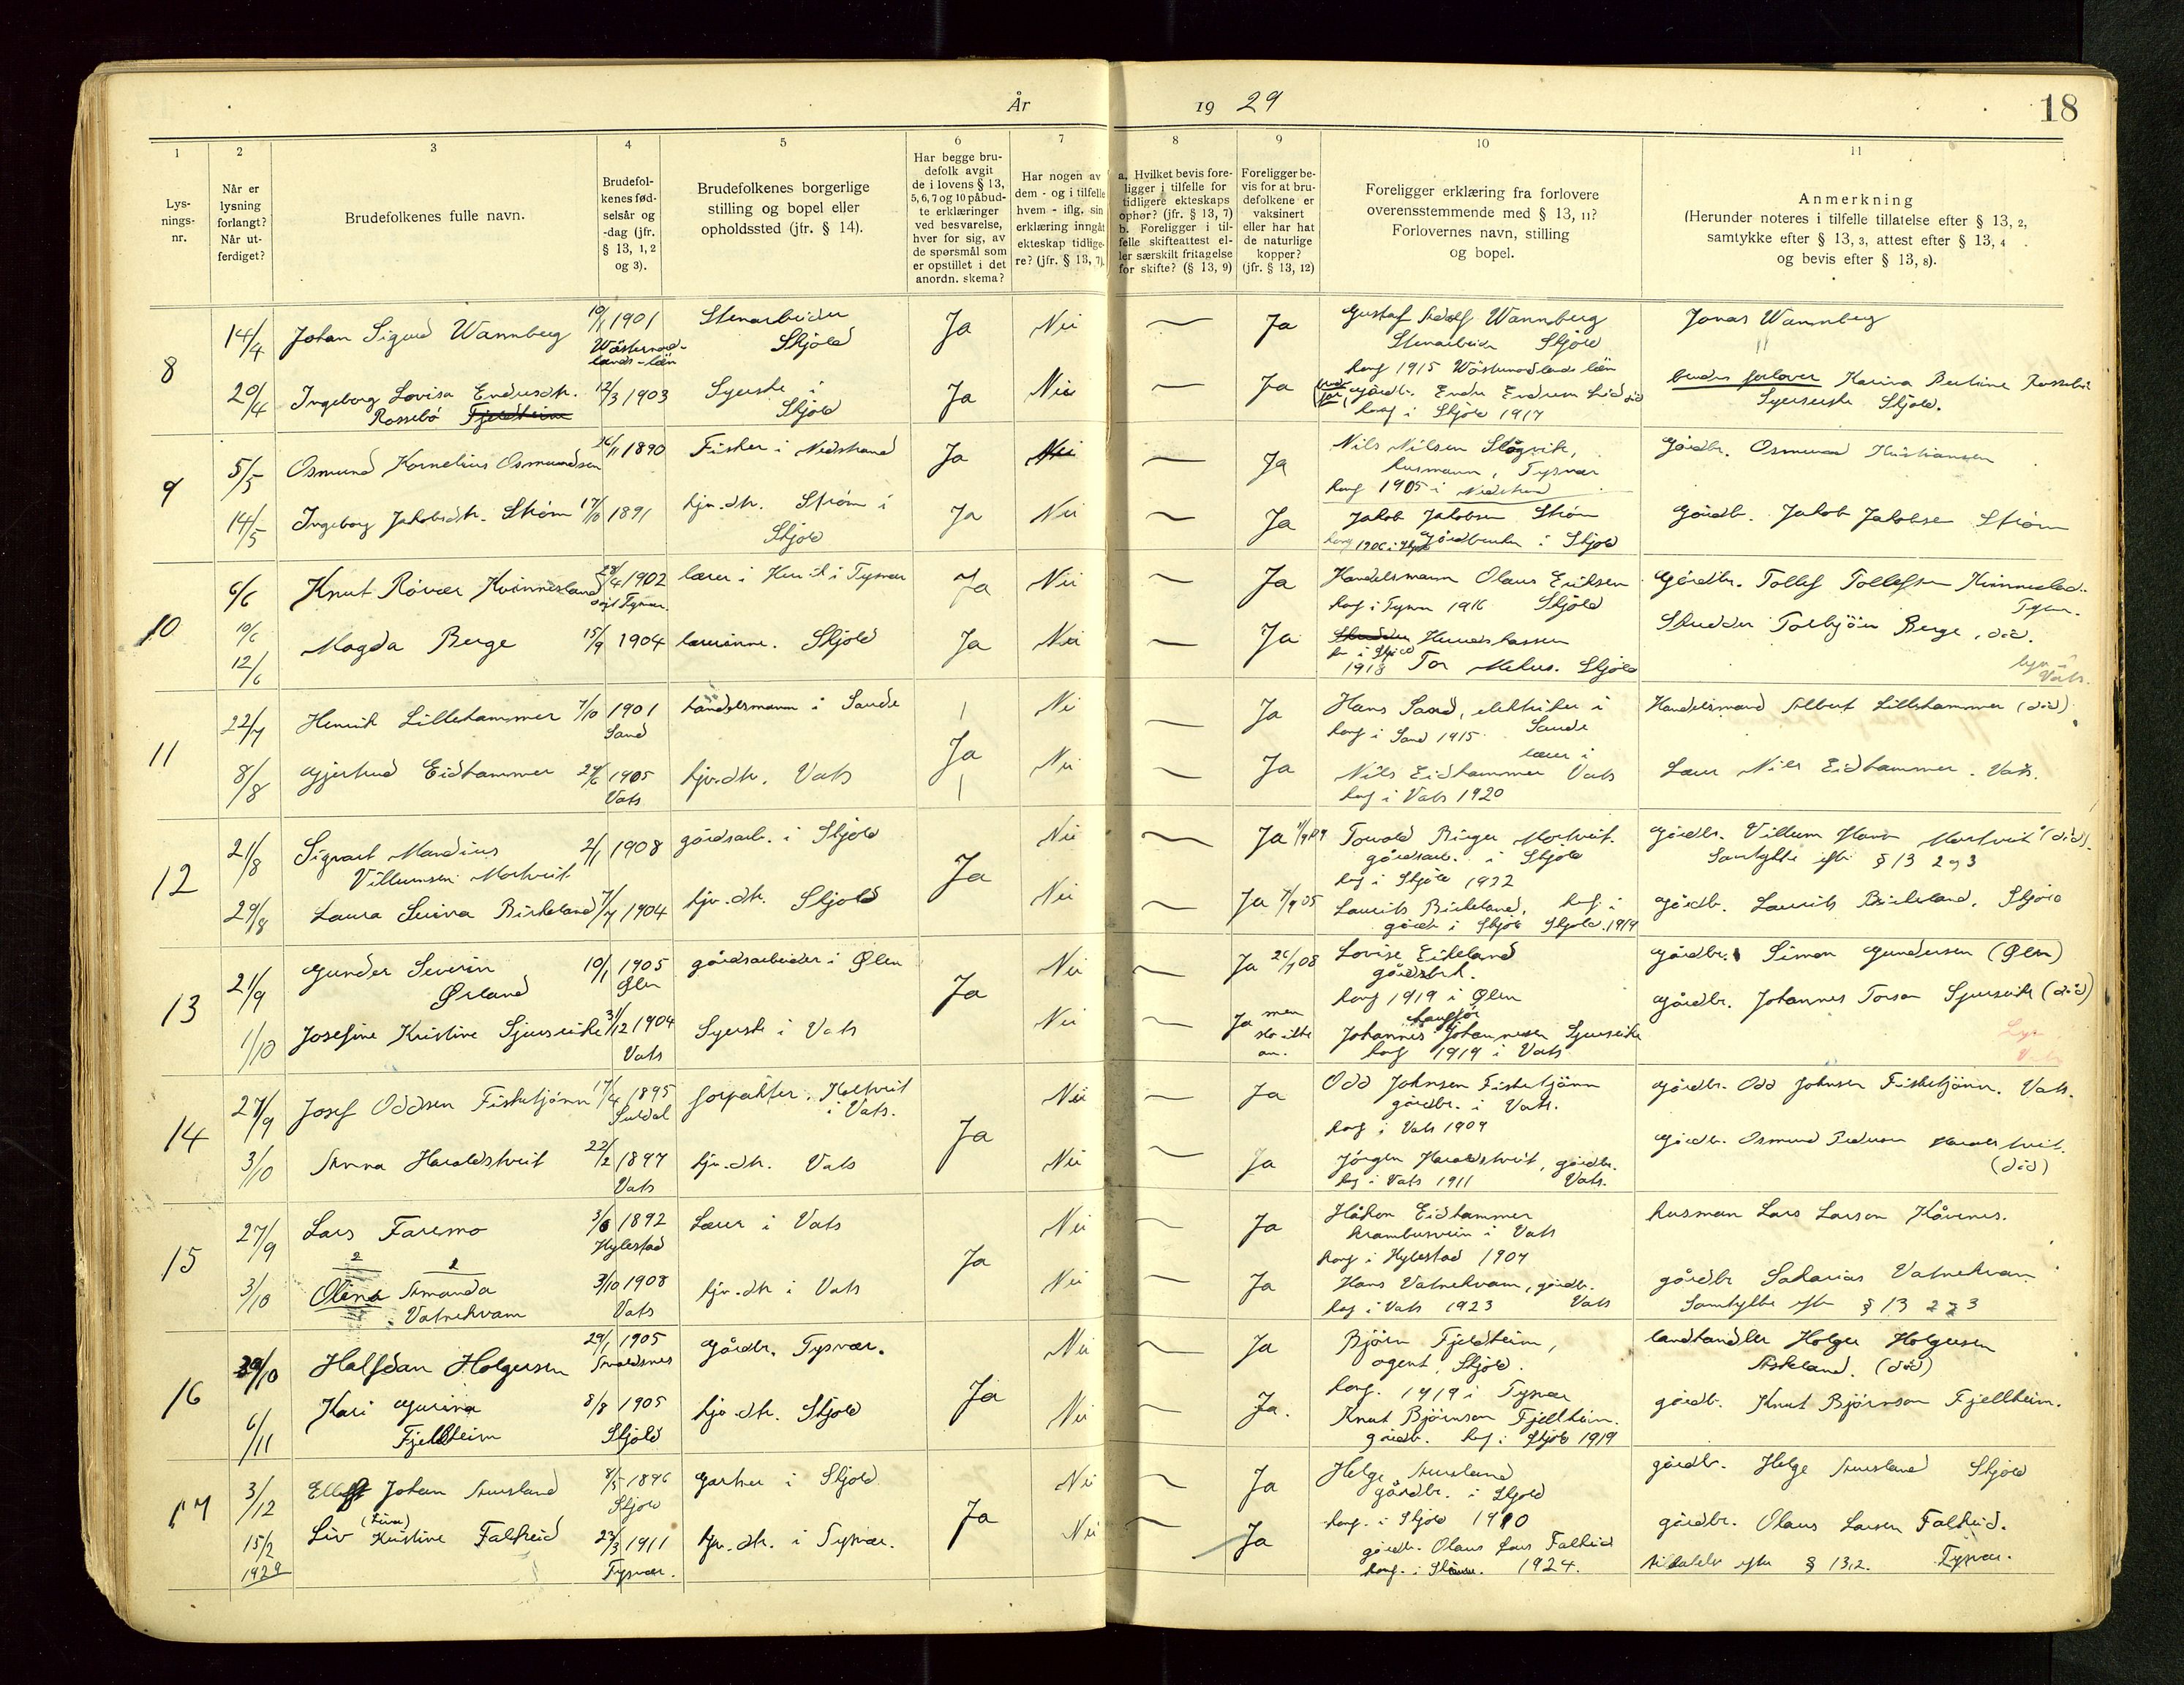 År 19 29
18
1
Lys-
nings-
nr.
2
Når er
lysning
forlangt?
Når ut-
ferdiget?
3
Brudefolkenes fulle navn.
4
Brudefol-
kenes fød-
selsår og
-dag (jfr.
§ 13, 1, 2
og 3).
5
Brudefolkenes borgerlige
stilling og bopel eller
opholdssted (jfr. § 14).
6
Har begge bru-
defolk avgit
de i lovens § 13,
5, 6, 7 og 10 påbud-
te erklæringer
ved besvarelse,
hver for sig, av
de spørsmål som
er opstillet i det
anordn. skema?
7
Har nogen av
dem - og i tilfelle
hvem - iflg. sin
erklæring inngåt
ekteskap tidlige-
re? (jfr. § 13, 7).
8
a. Hvilket bevis fore-
ligger i tilfelle for
tidligere ekteskaps
ophør? (jfr. § 13, 7)
b. Foreligger i til-
felle skifteattest el-
ler særskilt fritagelse
for skifte? (§ 13, 9)
9
Foreligger be-
vis for at bru-
defolkene er
vaksinert
eller har hat
de naturlige
kopper?
(jfr. § 13, 12)
10
Foreligger erklæring fra forlovere
overensstemmende med § 13, 11?
Forlovernes navn, stilling
og bopel.
11
Anmerkning
(Herunder noteres i tilfelle tillatelse efter § 13, 2,
samtykke efter § 13, 3, attest efter § 13, 4
og bevis efter § 13, 8).
8
14/4 Johan Sigurd Wannberg 10/1 1901 Stenarbeider Skjold Ja Nei — Ja Gustaf Adolf Wannberg Jonas Wannberg
Wästernord-
lands-län
Stenarbeider Skjold
konf 1915 Wästernorrlands län
20/4 Ingeborg Lovisa Endresdtr. 12/3 1903 Syerske i Skjold Ja Nei — Ja gårdbr. Endre Endresen
Rossebö Fjeldheim
konf i Skjold 1917
brudens forlover Karina Bertine Rossebö
Syerske Skjold.
9
5/5 Osmund Kornelius Osmundsen 26/11 1890 Fisker i Nedstrand Ja Nei — Ja Nils Nilsen Stågvik, Gårdbr. Osmund Kristiansen
husmann, Tysvær
konf 1905 i Nedstrand
14/5 Ingeborg Jakobsdtr. Ström 17/10 1891 hjv. dtr. Ström i Skjold Ja Nei — Ja Jakob Jakobsen Ström Gårdb. Jakob Jakobsen Ström
konf 1906 i Skjold gårdbruker i Skjold
10
6/6 Knut Rövær Kvinnesland 28/4 1902 lærer i Tysvær Ja Nei — Ja Handelsmann Olaus Eriksen Gårdbr. Tollef Tollefsen Kvinnesland
Tysvær.
konf i Tysvær 1916 Skjold
10/6
12/6 Magda Berge 15/9 1904 lærerinne. Skjold Ja Nei — Ja Herredskasser Skredder Torbjörn Berge, död.
1918 Tor Mehus. Skjold
lyst i
Vats.
11
22/7 Henrik Lillehammer 7/10 1901 Sand handelsmann i Saude Ja Nei — Ja Hans Sand, elektriker i Saude Handelsmand Albert Lillehammer (död)
konf i Sand 1915
8/8 Gjertrud Eidhammer 29/6 1905 Vats hjv. dtr. Vats Nei — Ja Nils Eidhammer lærer i Vats Lærer Nils Eidhammer. Vats.
konf i Vats 1920
12
21/8 Sigvart Mandius 2/1 1908 gårdsarb. i Skjold Ja Nei — Ja 11/9 09 Torvald Birger Mortveit Gårdbr. Villum Hans Mortveit (död).
Villumsen Mortveit
gårdsarb. i Skjold
konf i Skjold 1922
Samtykke efter § 13 2 og 3
29/8 Laura Serina Birkeland 7/7 1904 hjv. dtr. Skjold Nei — Ja 7/9 05 Laurits Birkeland, konf i Gårdbr. Laurits Birkeland, Skjold
gårdb i Skjold Skjold 1919
13
21/9 Gunder Severin 10/1 1905 Ølen gårdsarbeider i Ølen Ja Nei — Ja 26/7 08 Lovise Eikeland Gårdbr. Simon Gundersen (Ølen)
Ørland
konf 1919 i Ølen
1/10 Josefine Kristine Sjurseike 31/12 1904 Vats Syerske i Vats Nei — Ja men slo ikke an. chauffør Johannes Johannesen Sjurseike Gårdbr. Johannes Torson Sjurseike (död)
konf 1919 i Vats
Lyst
Vats
14
27/9 Josef Oddsen Fisketjönn 17/4 1895 Suldal forpakter. Kaltveit i Vats. Ja Nei — Ja Odd Johnsen Fisketjönn Gårdbr. Odd Johnsen Fisketjönn. Vats.
gårdbr. i Vats.
konf i Vats 1909
3/10 Anna Haraldstveit 22/2 1897 Vats hjv. dtr. Vats Nei — Ja Jörgen Haraldstveit, gårdbr. Gårdbr. Osmund Pederson Haraldstveit. (död)
konf i Vats 1911 Vats.
15
27/9 Lars Faremo 3/6 1892 Hylestad Lærer i Vats Ja Nei — Ja Håkon Eidhammer husmann Lars Larson Håvenes.
krambusvein i Vats
konf i Hylestad 1907
2 2
3/10 Olena Amanda 3/10 1908 Vats hjv. dtr i Vats Nei — Ja Hans Vatnekvam, gårdbr. gårdbr Sakarias Vatnekvam
Vatnekvam
konf i Vats 1923 Vats
Samtykke efter § 13 2 og 3
16
29/10 Halfdan Holgersen 29/1 1905 Avaldsnes Gårdbr. Tysvær. Ja Nei — Ja Björn Fjeldheim, landhandler Holger Holgersen
agent, Skjold.
Askeland. (död)
konf. 1919 i Tysvær
6/11 Kari Gurina 8/8 1905 Skjold hjv. dtr. Skjold Nei — Ja. Knut Björnson Fjellheim. gårdb. Knut Björnson Fjellheim.
Fjellheim
gårdb. konf i Skjold 1919
17
3/12 Ellef Johan Aursland 8/5 1896 Skjold Gartner i Skjold Ja Nei — Ja Helge Aursland gårdbr. Helge Aursland Skjold
gårdbr. i Skjold
konf. i Skjold 1910
15/2 1929 Liv (Lina) Kristine Falkeid 23/3 1911 Tysvær. hjv. dtr. i Tysvær. Nei — Ja gårdbr. Olaus Lars Falkeid gårdbr. Olaus Larsen Falkeid.
konf. i 1924.
efter § 13,2. Tysvær.